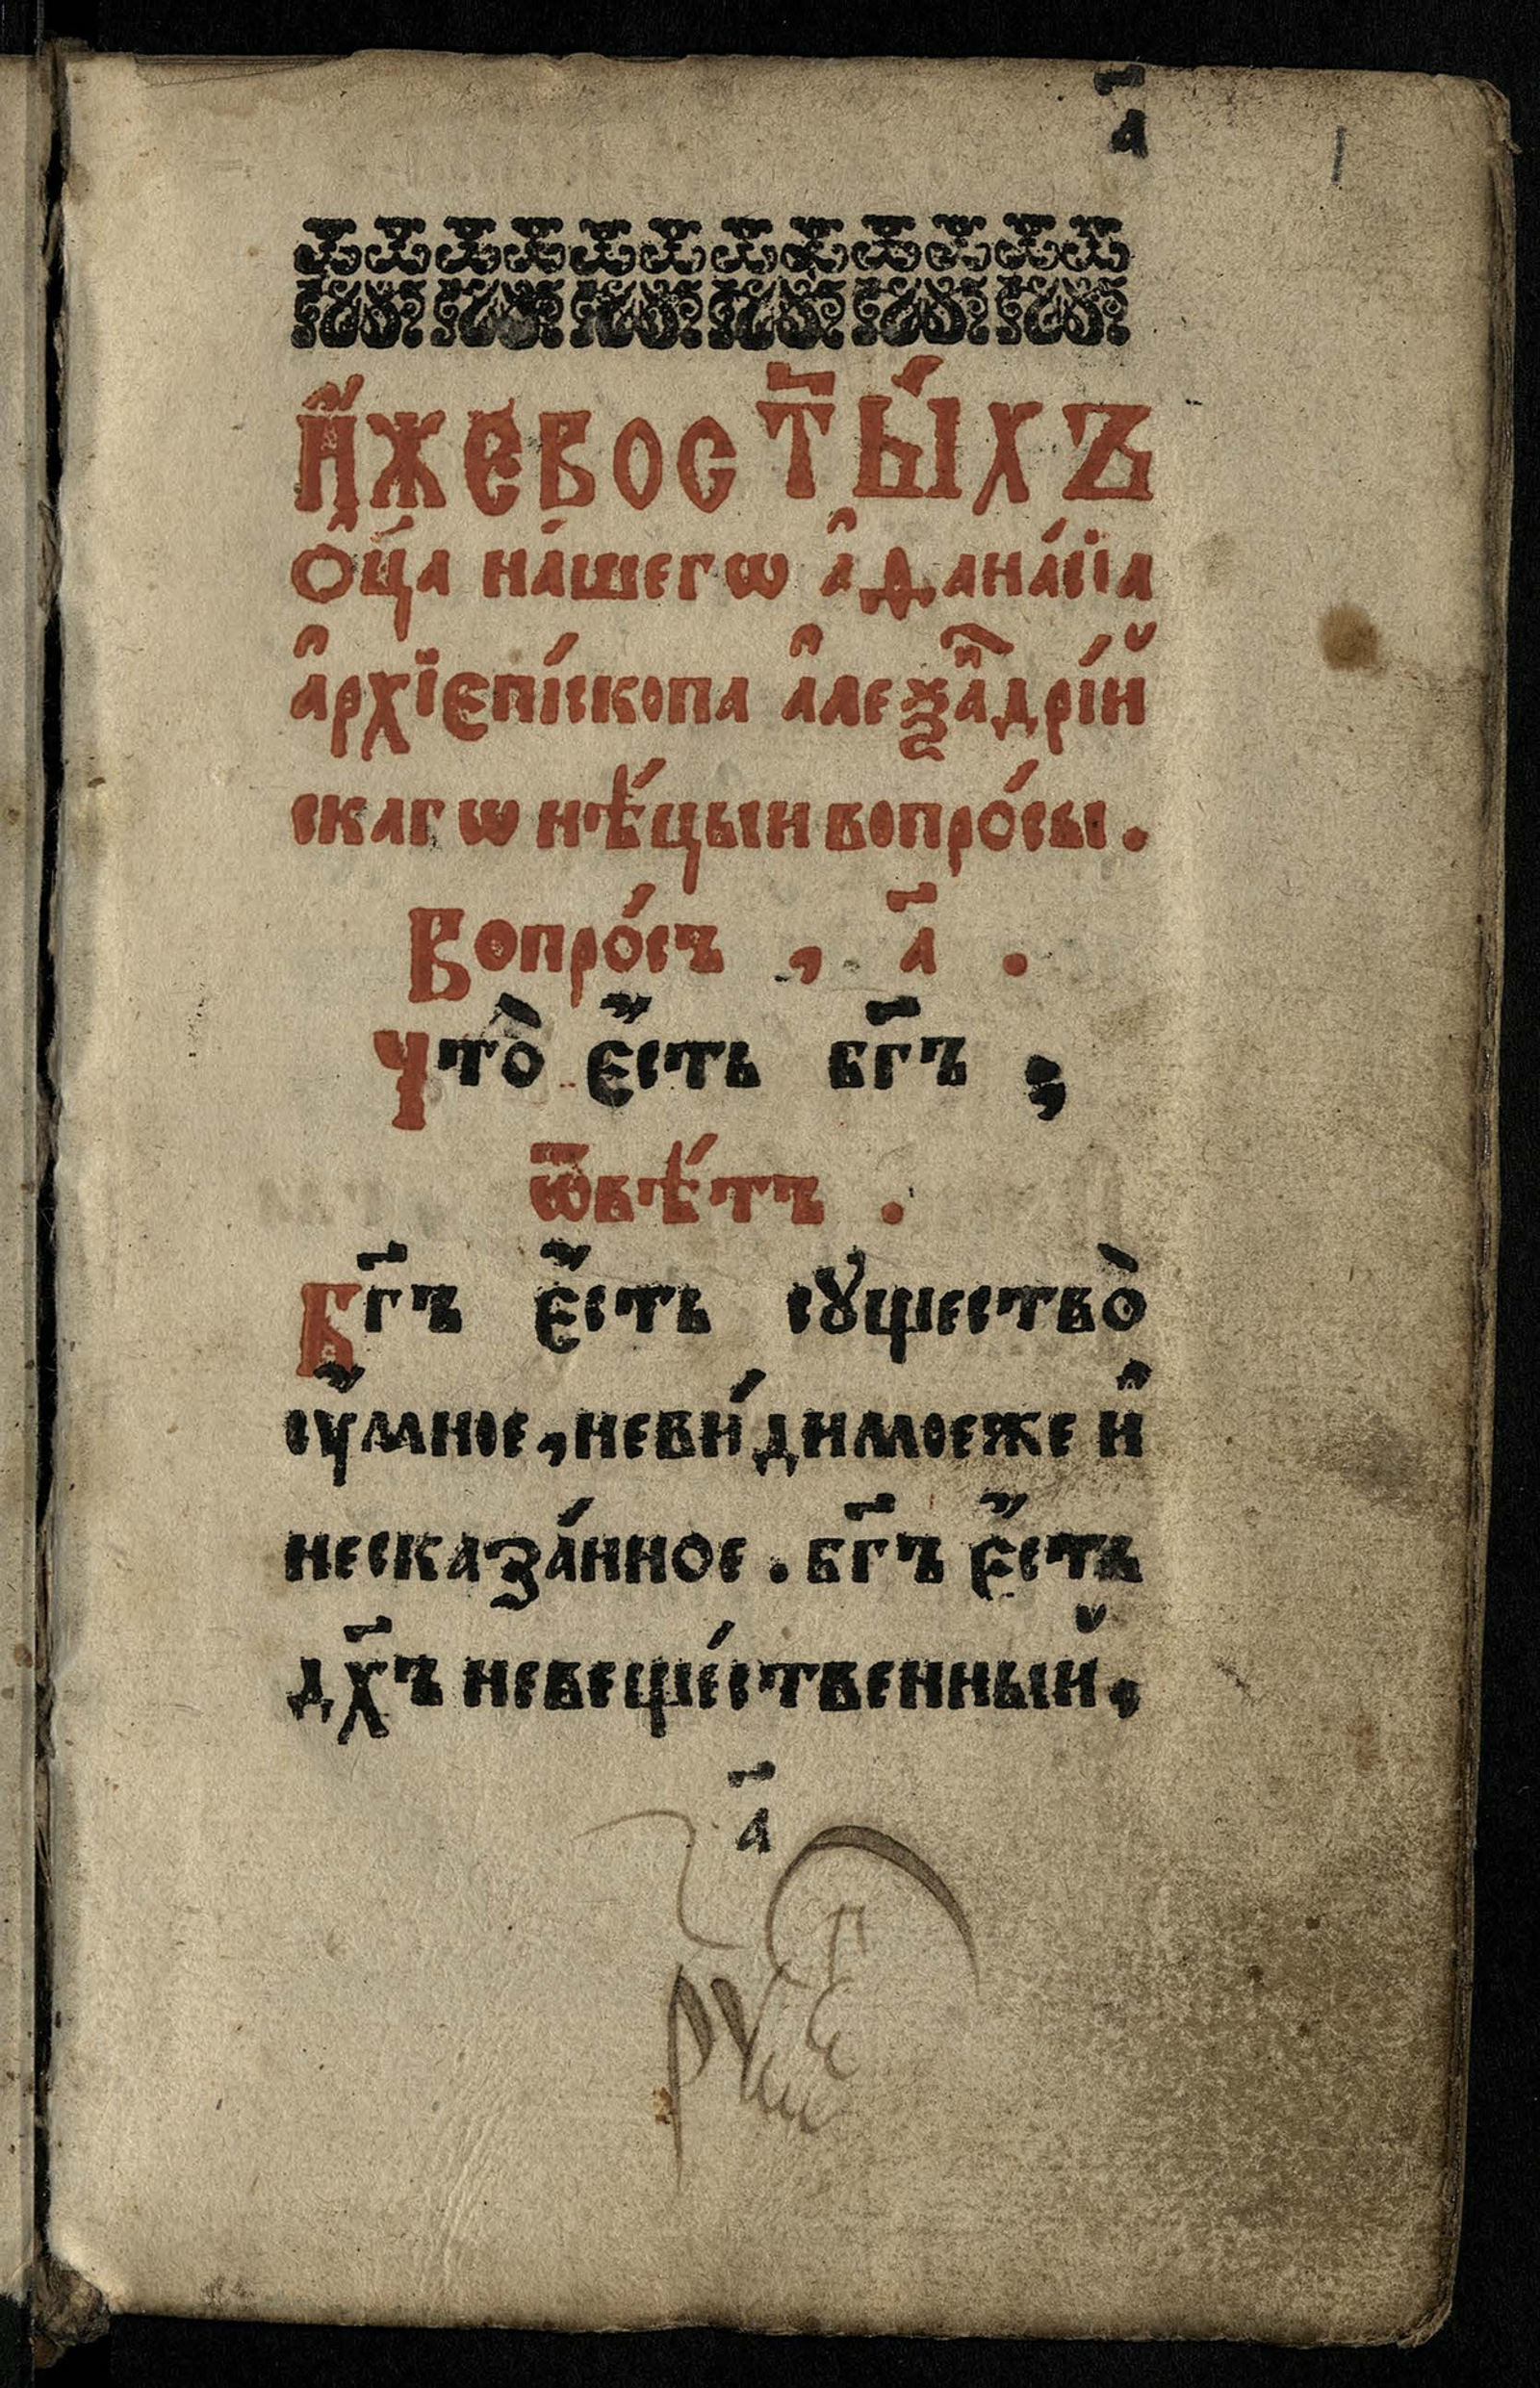 а҃
1
И҆́же во ст҃ы́хъ
Ѻ҆ц҃а̀ на́шегѡ а҆ѳана́сїа
а҆рхїепі́скопа а҆леѯа҆́дрі́й
скагѡ нѣ́цыи вопро́сы.
Вопро́съ , а҃ .
Что̀ є҆́сть бг҃ъ ,
ѿвѣ́тъ .
Бг҃ъ є҆́сть сꙋщество̀
оу҆́мное, неви́димоеже и҆
несказа́нное . бг҃ъ є҆́сть
дх҃ъ невеще́ственный,
а҃